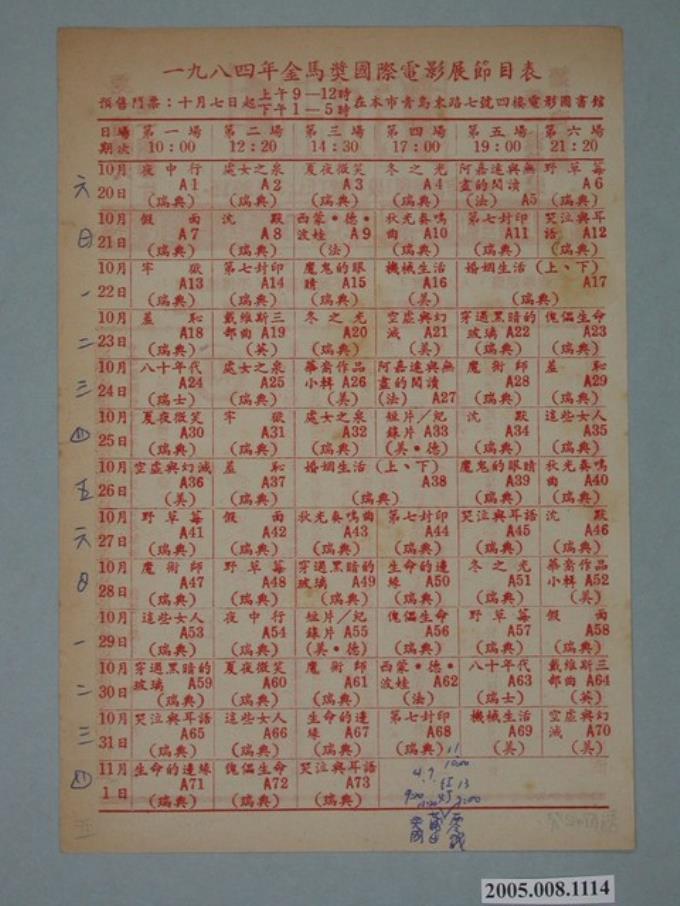 一九八四年金馬獎國際電影展節目表
預售門票：十月七日起 上午9—12時 下午1—5時 在本市青島東路七號四樓電影圖書館
日期 場次 第一場 10:00 第二場 12:20 第三場 14:30 第四場 17:00 第五場 19:00 第六場 21:20
六 10月20日 夜中行 A1 (瑞典) 處女之泉 A2 (瑞典) 夏夜微笑 A3 (瑞典) 冬之光 A4 (瑞典) 阿嘉達與無盡的閱讀 (法) A5 野草莓 A6 (瑞典)
日 10月21日 假面 A7 (瑞典) 沈默 A8 (瑞典) 西蒙•德•波娃 A9 (法) 秋光奏鳴曲 A10 (瑞典) 第七封印 A11 (瑞典) 哭泣與耳語 A12 (瑞典)
一 10月22日 牢獄 A13 (瑞典) 第七封印 A14 (瑞典) 魔鬼的眼睛 A15 (瑞典) 機械生活 A16 (美) 婚姻生活（上、下） A17 (瑞典)
二 10月23日 羞恥 A18 (瑞典) 戴維斯三部曲 A19 (英) 冬之光 A20 (瑞典) 空虛與幻滅 A21 (美) 穿過黑暗的玻璃 A22 (瑞典) 傀儡生命 A23 (瑞典)
三 10月24日 八十年代 A24 (瑞士) 處女之泉 A25 (瑞典) 華裔作品小輯 A26 (美) 阿嘉達與無盡的閱讀 (法) A27 魔術師 A28 (瑞典) 羞恥 A29 (瑞典)
四 10月25日 夏夜微笑 A30 (瑞典) 牢獄 A31 (瑞典) 處女之泉 A32 (瑞典) 短片／紀錄片 A33 (美•德) 沈默 A34 (瑞典) 這些女人 A35 (瑞典)
五 10月26日 空虛與幻滅 A36 (美) 羞恥 A37 (瑞典) 婚姻生活（上、下） A38 (瑞典) 魔鬼的眼睛 A39 (瑞典) 秋光奏鳴曲 A40 (瑞典)
六 10月27日 野草莓 A41 (瑞典) 假面 A42 (瑞典) 秋光奏鳴曲 A43 (瑞典) 第七封印 A44 (瑞典) 哭泣與耳語 A45 (瑞典) 沈默 A46 (瑞典)
日 10月28日 魔術師 A47 (瑞典) 野草莓 A48 (瑞典) 穿過黑暗的玻璃 A49 (瑞典) 生命的邊緣 A50 (瑞典) 冬之光 A51 (瑞典) 華裔作品小輯 A52 (美)
一 10月29日 這些女人 A53 (瑞典) 夜中行 A54 (瑞典) 短片／紀錄片 A55 (美•德) 傀儡生命 A56 (瑞典) 野草莓 A57 (瑞典) 假面 A58 (瑞典)
二 10月30日 穿過黑暗的玻璃 A59 (瑞典) 夏夜微笑 A60 (瑞典) 魔術師 A61 (瑞典) 西蒙•德•波娃 A62 (法) 八十年代 A63 (瑞士) 戴維斯三部曲 A64 (英)
三 10月31日 哭泣與耳語 A65 (瑞典) 這些女人 A66 (瑞典) 生命的邊緣 A67 (瑞典) 第七封印 A68 (瑞典) 機械生活 A69 (美) 空虛與幻滅 A70 (美)
四 11月1日 生命的邊緣 A71 (瑞典) 傀儡生命 A72 (瑞典) 哭泣與耳語 A73 (瑞典)
2005.008.1114